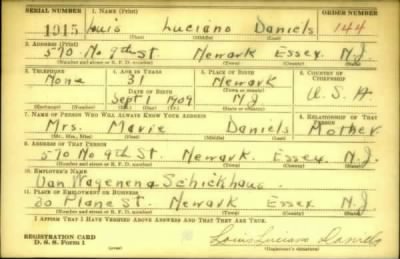 SERIAL NUMBER 1. NAME (Print) ORDER NUMBER
1915 Louis Luciano Daniels 144
(First) (Middle) (Last)
2. ADDRESS (Print)
570 No 9th St. Newark Essex N.J.
(Number and street or R. F. D. number) (Town) (County) (State)
3. TELEPHONE 4. AGE IN YEARS 5. PLACE OF BIRTH 6. COUNTRY OF CITIZENSHIP
None 31 Newark
DATE OF BIRTH (Town or county)
Sept 1 1909 N.J. U.S.A
(Exchange) (Number) (Mo.) (Day) (Yr.) (State or country)
7. NAME OF PERSON WHO WILL ALWAYS KNOW YOUR ADDRESS 8. RELATIONSHIP OF THAT PERSON
Mrs. Marie Daniels Mother
(Mr., Mrs., Miss) (First) (Middle) (Last)
9. ADDRESS OF THAT PERSON
570 No 9th St. Newark Essex N.J.
(Number and street or R. F. D. number) (Town) (County) (State)
10. EMPLOYER'S NAME
Van Wagenena Schickhaus
11. PLACE OF EMPLOYMENT OR BUSINESS
30 Plane St Newark Essex N.J.
(Number and street or R. F. D. number) (Town) (County) (State)
I AFFIRM THAT I HAVE VERIFIED ABOVE ANSWERS AND THAT THEY ARE TRUE.
REGISTRATION CARD
D. S. S. Form 1 (over) Louis Luciano Daniels
(Registrant's signature)